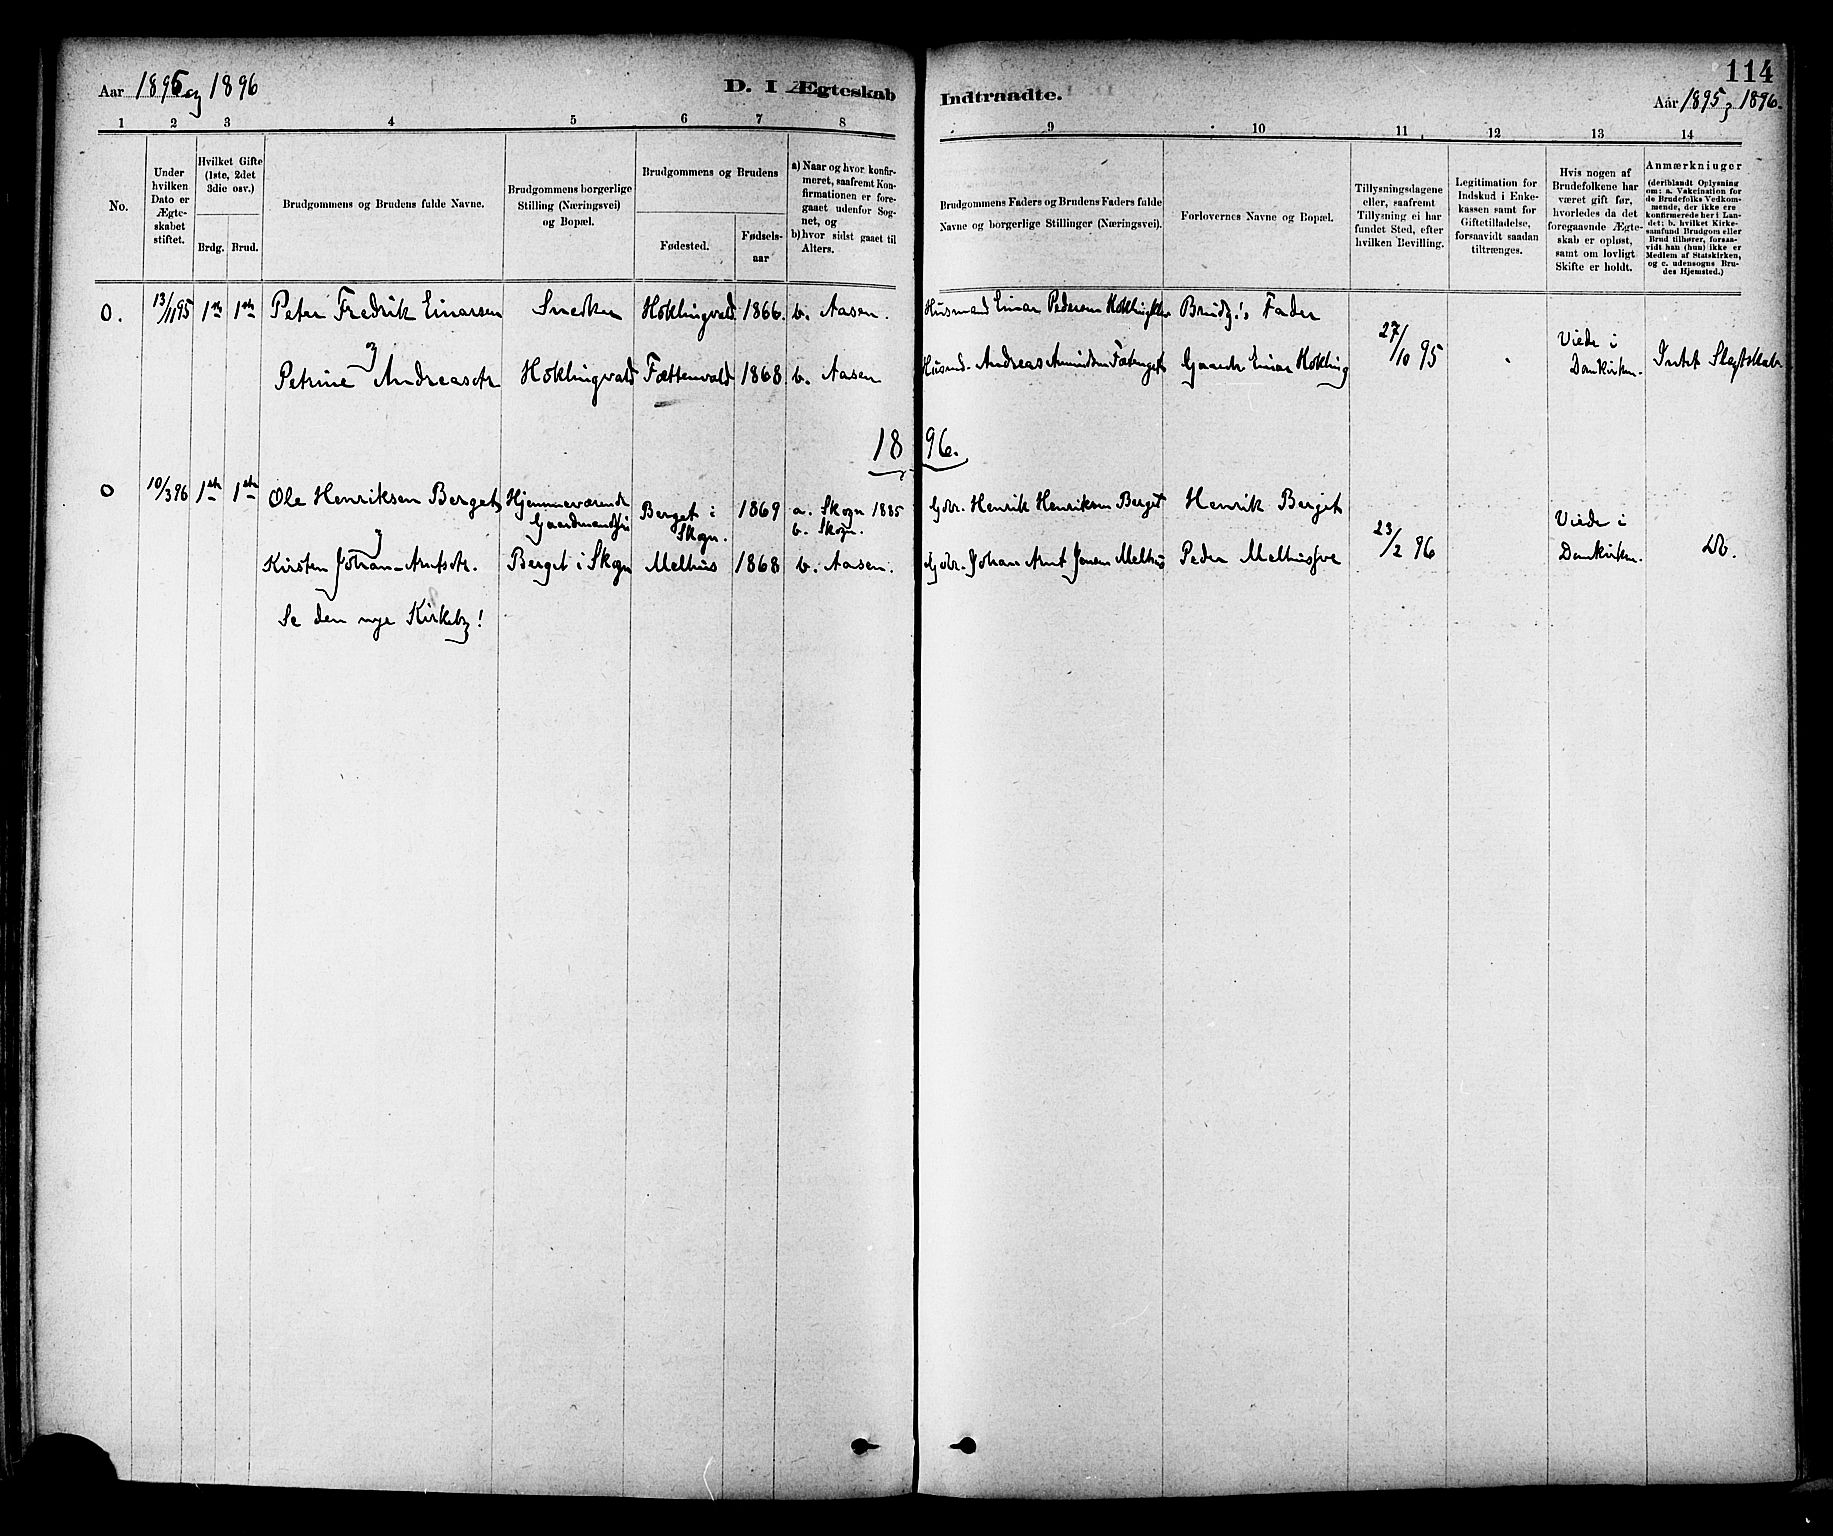 114
Aar 1895 og 1896
D. I Ægteskab
Indtraadte.
Aar 1895 & 1896.
1 2 3 4 5 6 7 8 9 10 11 12 13 14
No.
Under
hvilken
Dato er
Ægte-
skabet
stiftet.
Hvilket Gifte
(1ste, 2det
3die osv.)
Brdg. Brud.
Brudgommens og Brudens fulde Navne.
Brudgommens borgerlige
Stilling (Næringsvei)
og Bopæl.
Brudgommens og Brudens
Fødested.
Fødsels-
aar
a) Naar og hvor konfir-
meret, saafremt Kon-
firmationen er fore-
gaaet udenfor Sog-
net, og
b) hvor sidst gaaet til
Alters.
Brudgommens Faders og Brudens Faders fulde
Navne og borgerlige Stillinger (Næringsvei).
Forlovernes Navne og Bopæl.
Tillysningsdagene
eller, saafremt
Tillysning ei har
fundet Sted, efter
hvilken Bevilling.
Legitimation for
Indskud i Enke-
kassen samt for
Giftetilladelse,
forsaavidt saadan
tiltrænges.
Hvis nogen af
Brudefolkene har
været gift før,
hvorledes da det
foregaaende Ægte-
skab er opløst,
samt om lovligt
Skifte er holdt.
Anmærkninger
(deriblandt Oplysning
om: a. Vakcination for
de Brudefolks Vedkom-
mende, der ikke ere
konfirmerede her i Lan-
det; b. hvilket Kirke-
samfund Brudgom eller
Brud tilhører, forsaa-
vidt han (hun) ikke er
Medlem af Statskirken,
og c. udensogns Bru-
des Hjemsted.)
0. 13/11 95 1ste 1ste Peter Fredrik Einarsen Snedker Hoklingvald 1866. b. Aasen. Husmand Einar Pedersen Brudg.'s Fader
27/10 95 Viede i Domkirken. Intet Slegtskab
Petrine Andreasdtr Hoklingvald Fættenvald 1868 b. Aasen Andreas Gaardbr. Einar Hokling
1896.
0 10/3 96 1ste 1ste Ole Henriksen Berget Hjemmeværende Berget i Skogn. 1869 a. Skogn 1885 b. Skogn. Gdbr. Henrik Henriksen Berget Henrik Berget
23/2 96 Viede i Domkirken. Do.
Kirsten Johan-Arntsdtr. Berget i Skogn Melhus 1868 b. Aasen. Gdbr. Johan Arnt Jensen Melhus Peder
Se den nye Kirkebog!